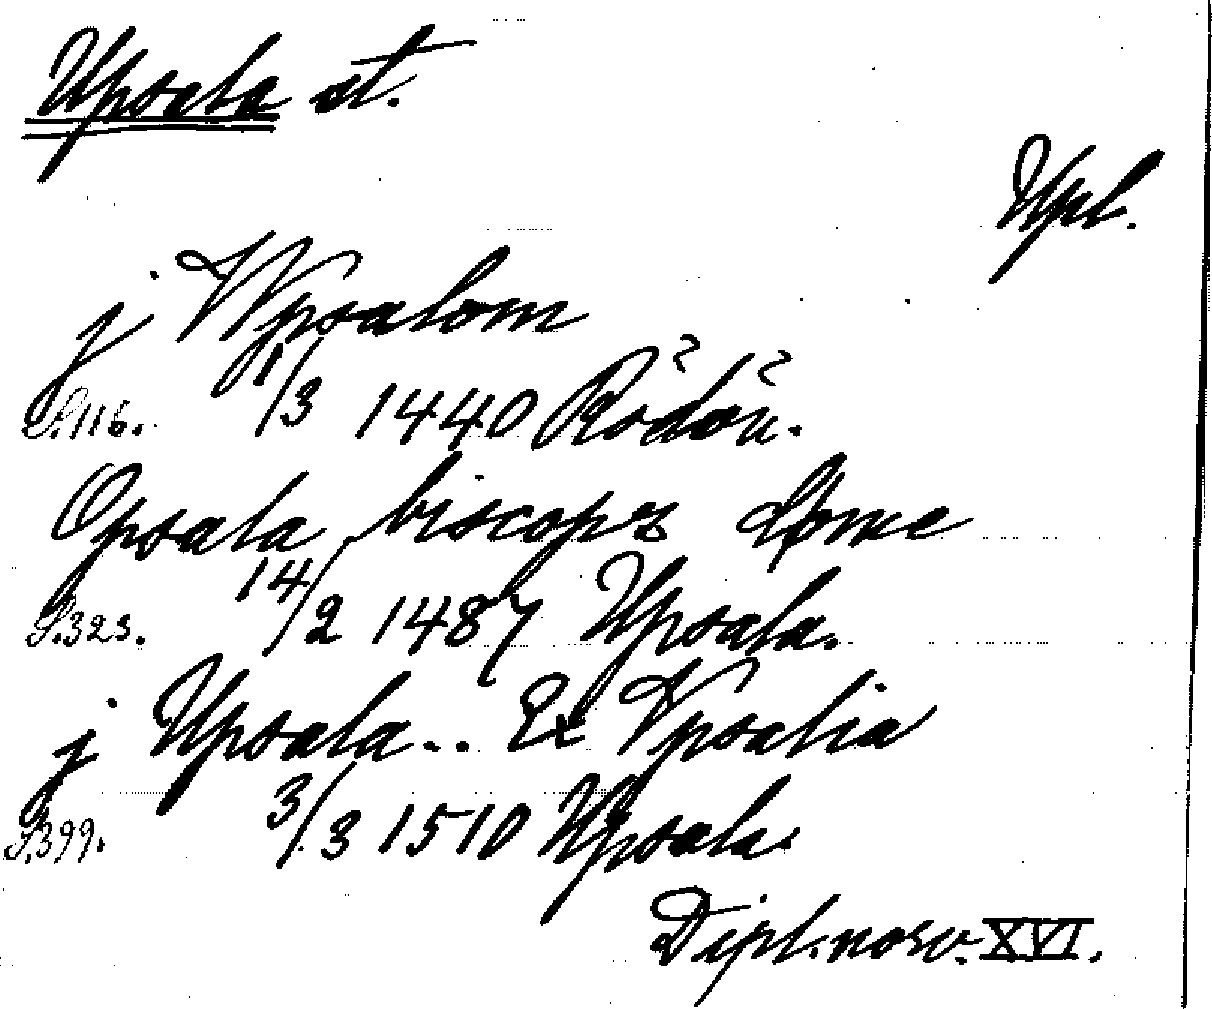 Upsala st.
Upl.
j Wpsalom
S. 116. 1/3 1440 Rödön.
Opsala biscops dome
S. 323. 14/2 1487 Upsala.
j Upsala.. Ex Vpsalia
S. 399. 3/3 1510 Upsala.
Dipl. norv. XVI.